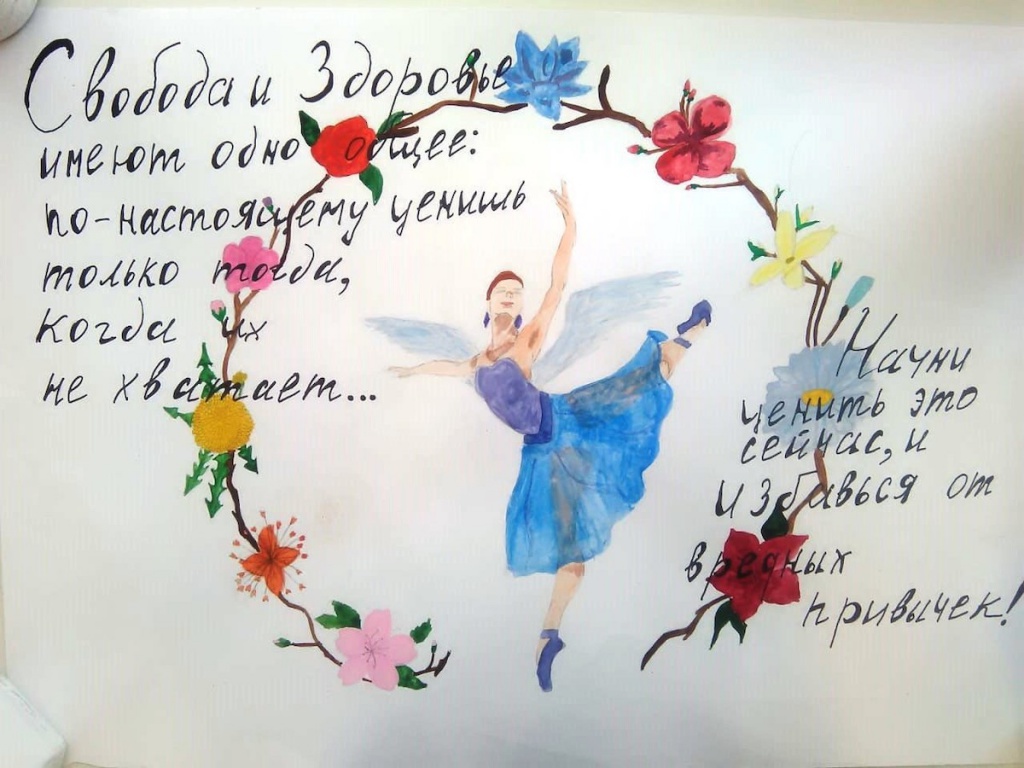 Свобода и Здоровье
имеют одно общее:
по-настоящему ценишь
только тогда,
когда их
не хватает...
Начни
ценить это
сейчас, и
избавься от
вредных
привычек!